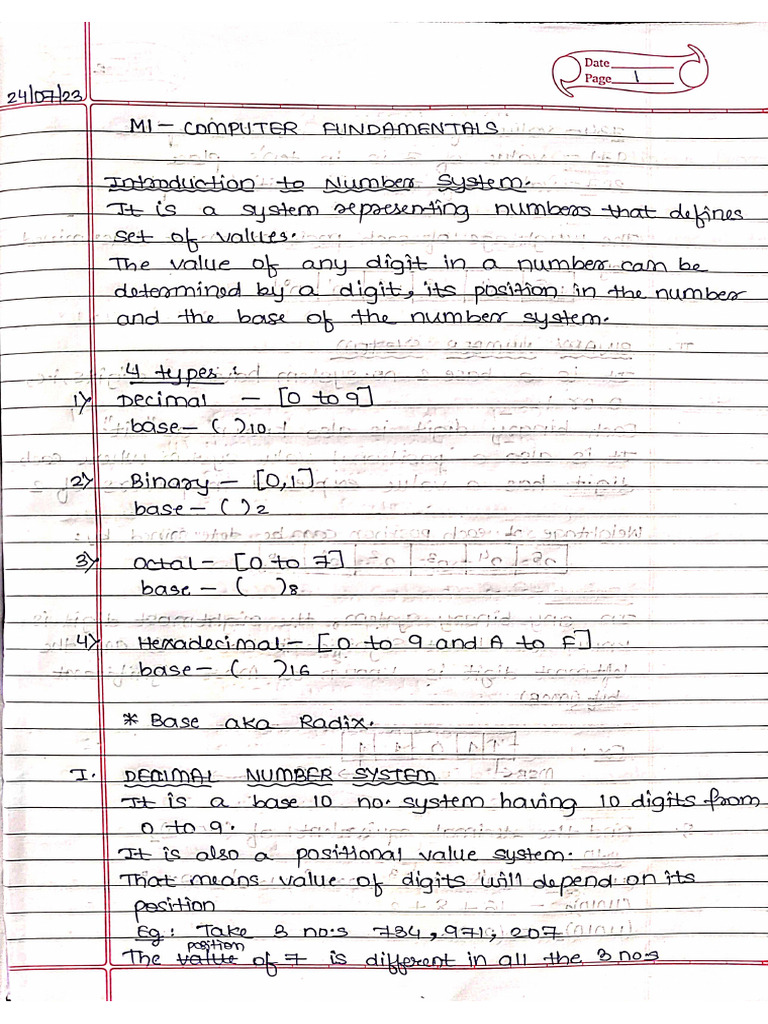 Date
Page 1
24/07/23
M1 - COMPUTER FUNDAMENTALS
Introduction to Number System.
It is a system representing numbers that defines
set of values.
The value of any digit in a number can be
determined by a digit, its position in the number
and the base of the number system.
4 types :
1) Decimal - [0 to 9]
base - ( )10
2) Binary - [0,1]
base - ( )2
3) Octal - [0 to 7]
base - ( )8
4) Hexadecimal - [0 to 9 and A to F]
base - ( )16
* Base aka Radix.
I. DECIMAL NUMBER SYSTEM
It is a base 10 no. system having 10 digits from
0 to 9.
It is also a positional value system.
That means value of digits will depend on its
position
Eg: Take 3 no.s 734, 971, 207
position
The value of 7 is different in all the 3 no.s